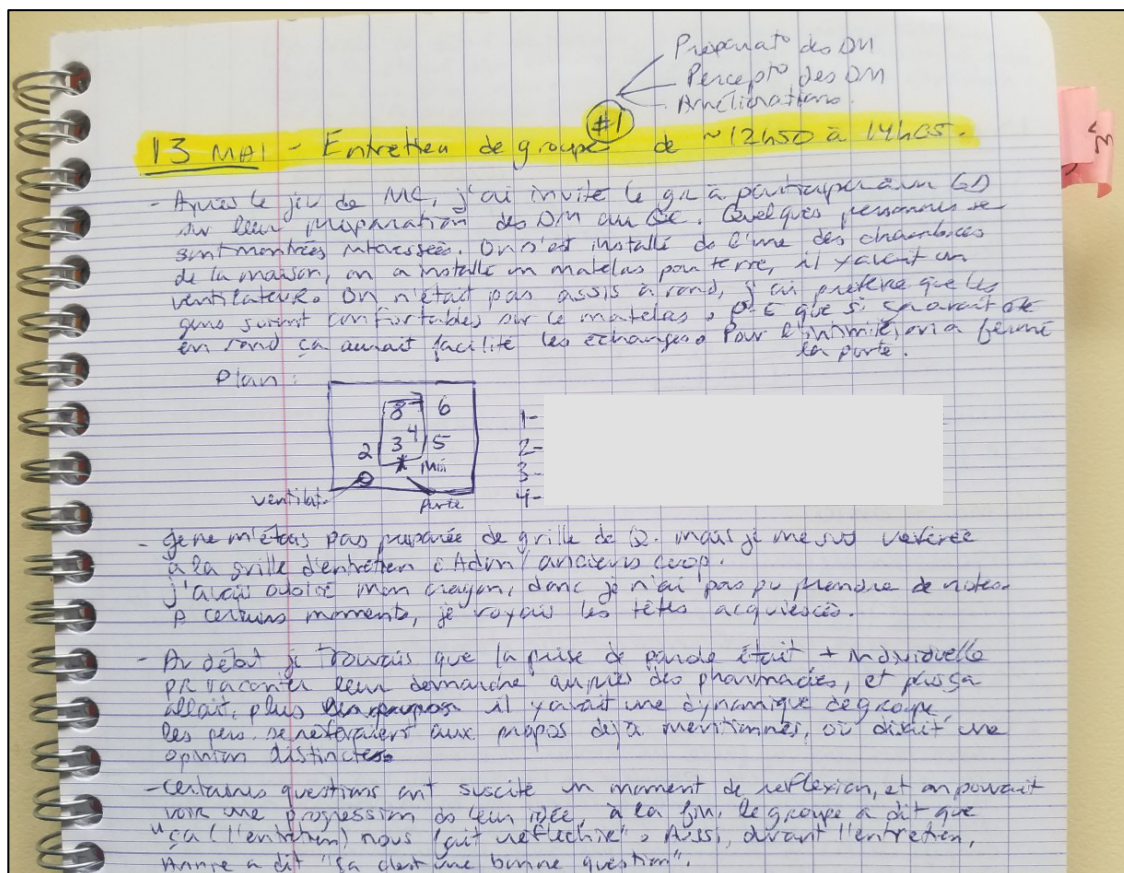 Préparat° des DM
Percept° des DM
Améliorations.
#1
13 MAI - Entretien de groupe de ~12h50 à 14h05.
- Après le jeu de MC, j'ai invité le gr à participer à un GD
sur leur préparation des DM au QC. Quelques personnes se
sont montrées intéressées. On s'est installé ds l'une des chambres
de la maison, on a installé un matelas par terre, il y avait un
ventilateur. On n'était pas assis à rond, j'ai préféré que les
gens soient confortables sur le matelas, P-E que si ça avait été
en rond ça aurait facilité les échanges. Pour l'intimité, on a fermé
la porte.
Plan :
8 6
2 3 4 5
* Moi
ventilat. Porte
1-
2-
3-
4-
- Je ne m'étais pas préparée de grille de Q. mais je me suis référée
à la grille d'entretien c Adm/anciens coop.
j'avais oublié mon crayon, donc je n'ai pas pu prendre de notes.
À certains moments, je voyais les têtes acquiescés.
- Au début je trouvais que la prise de parole était + individuelle
pr raconter leur démarche auprès des pharmacies, et plus ça
allait, plus il y avait une dynamique de groupe,
les pers. se référaient aux propos déjà mentionnés, où disait une
opinion distincte.
- Certaines questions ont suscité un moment de réflexion, et on pouvait
voir une progression ds leur idée, à la fin, le groupe a dit que
"ça (l'entretien) nous fait réfléchir". Aussi, durant l'entretien,
a dit "ça c'est une bonne question".
3